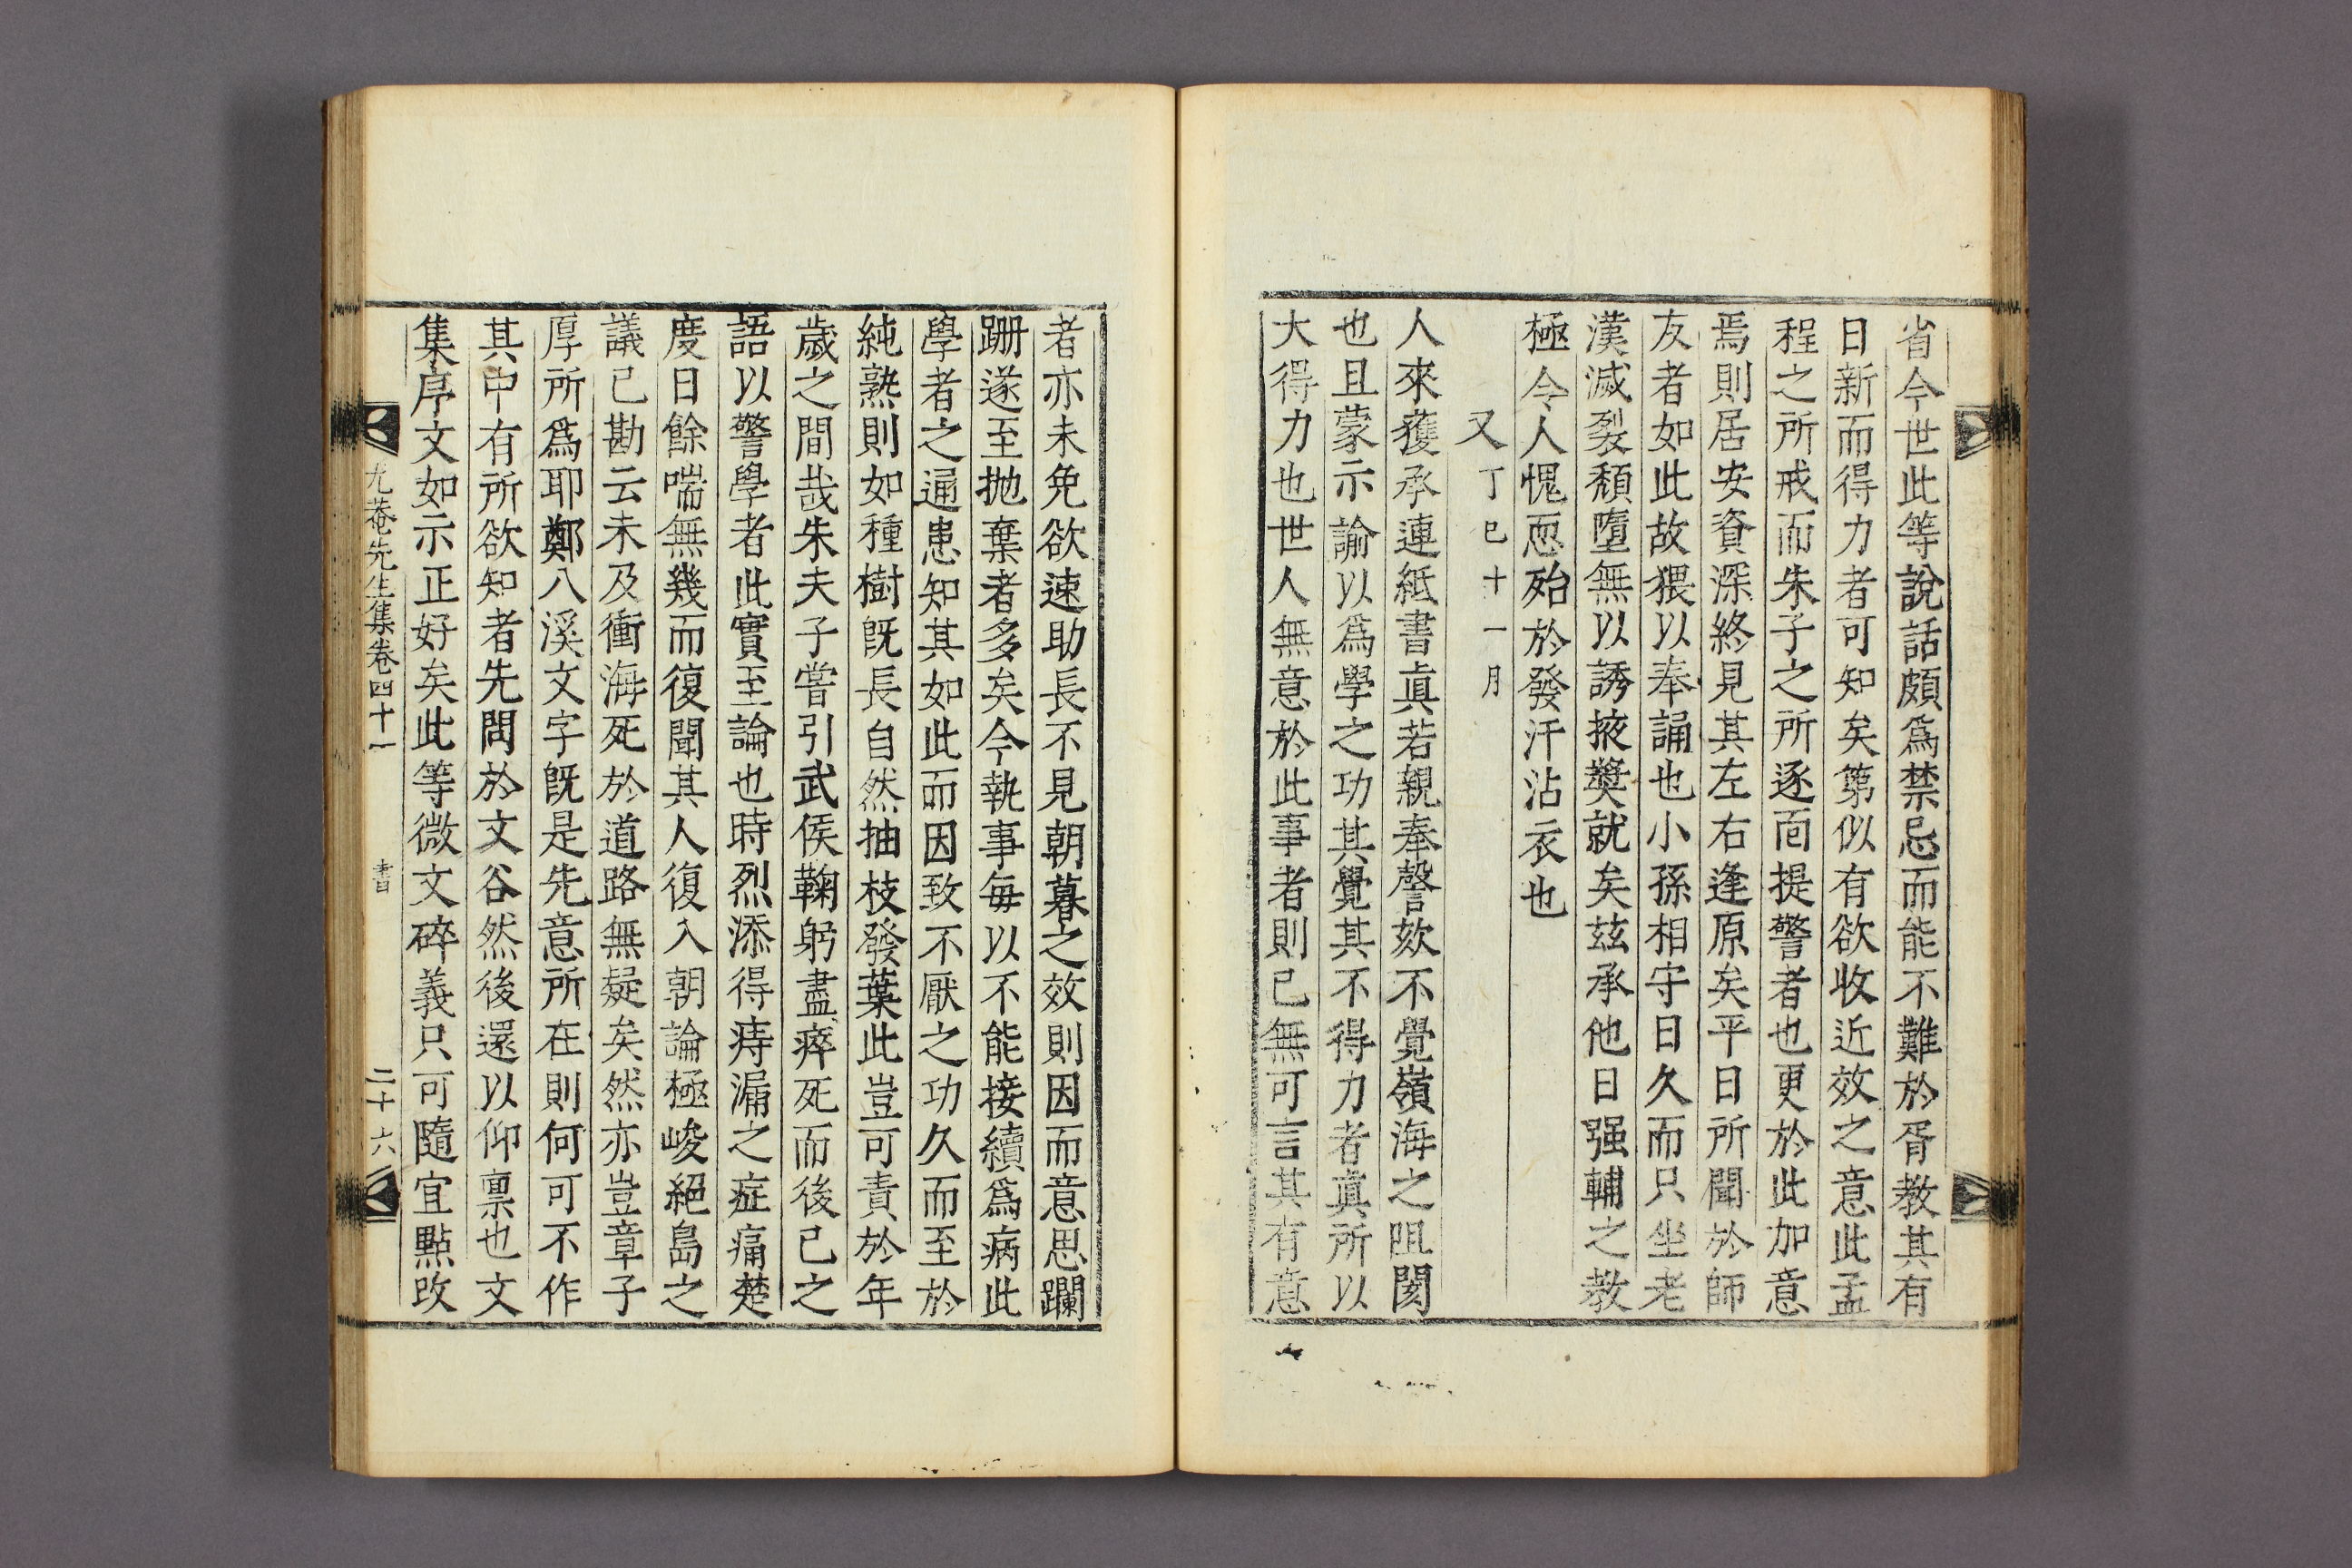 省今世此等說話頗爲禁忌而能不難於胥敎其有
日新而得力者可知矣第似有欲收近效之意此孟
程之所戒而朱子之所逐面提警者也更於此加意
焉則居安資深終見其左右逢原矣平日所聞於師
友者如此故猥以奉誦也小孫相守日久而只坐老
漢滅裂頹墮無以誘掖奬就矣玆承他日强輔之敎
極令人愧恧殆於發汗沾衣也
又 丁巳十一月
人來獲承連紙書眞若親奉謦欬不覺嶺海之阻閡
也且蒙示諭以爲學之功其覺其不得力者眞所以
大得力也世人無意於此事者則已無可言其有意
者亦未免欲速助長不見朝暮之效則因而意思躝
跚遂至抛棄者多矣今執事每以不能接續爲病此
學者之通患知其如此而因致不厭之功久而至於
純熟則如種樹旣長自然抽枝發葉此豈可責於年
歲之間哉朱夫子嘗引武侯鞠躬盡瘁死而後已之
語以警學者此實至論也時烈添得痔漏之症痛楚
度日餘喘無幾而復聞其人復入朝論極峻絕島之
議已勘云未及衝海死於道路無疑矣然亦豈章子
厚所爲耶鄭八溪文字旣是先意所在則何可不作
其中有所欲知者先問於文谷然後還以仰禀也文
集序文如示正好矣此等微文碎義只可隨宜點改
尤菴先生集卷四十一 書 二十六